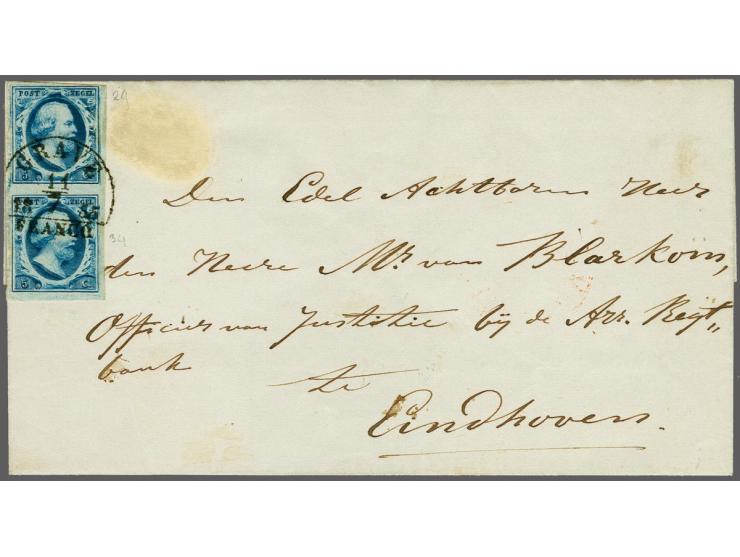 POST ZEGEL
29
5 C
GRAVE
11
7
FRANCO
POST ZEGEL
34
5 C
Den Edel Achtbaren Heer
den Heere Mr. van Blarkom,
Officier van Justitie bij de Arr. Regt„
bank
te
Eindhoven.